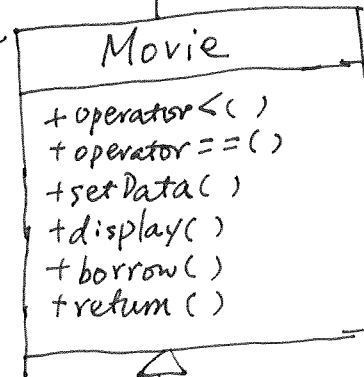 Movie
+operator<()
+operator==()
+setData()
+display()
+borrow()
+return()